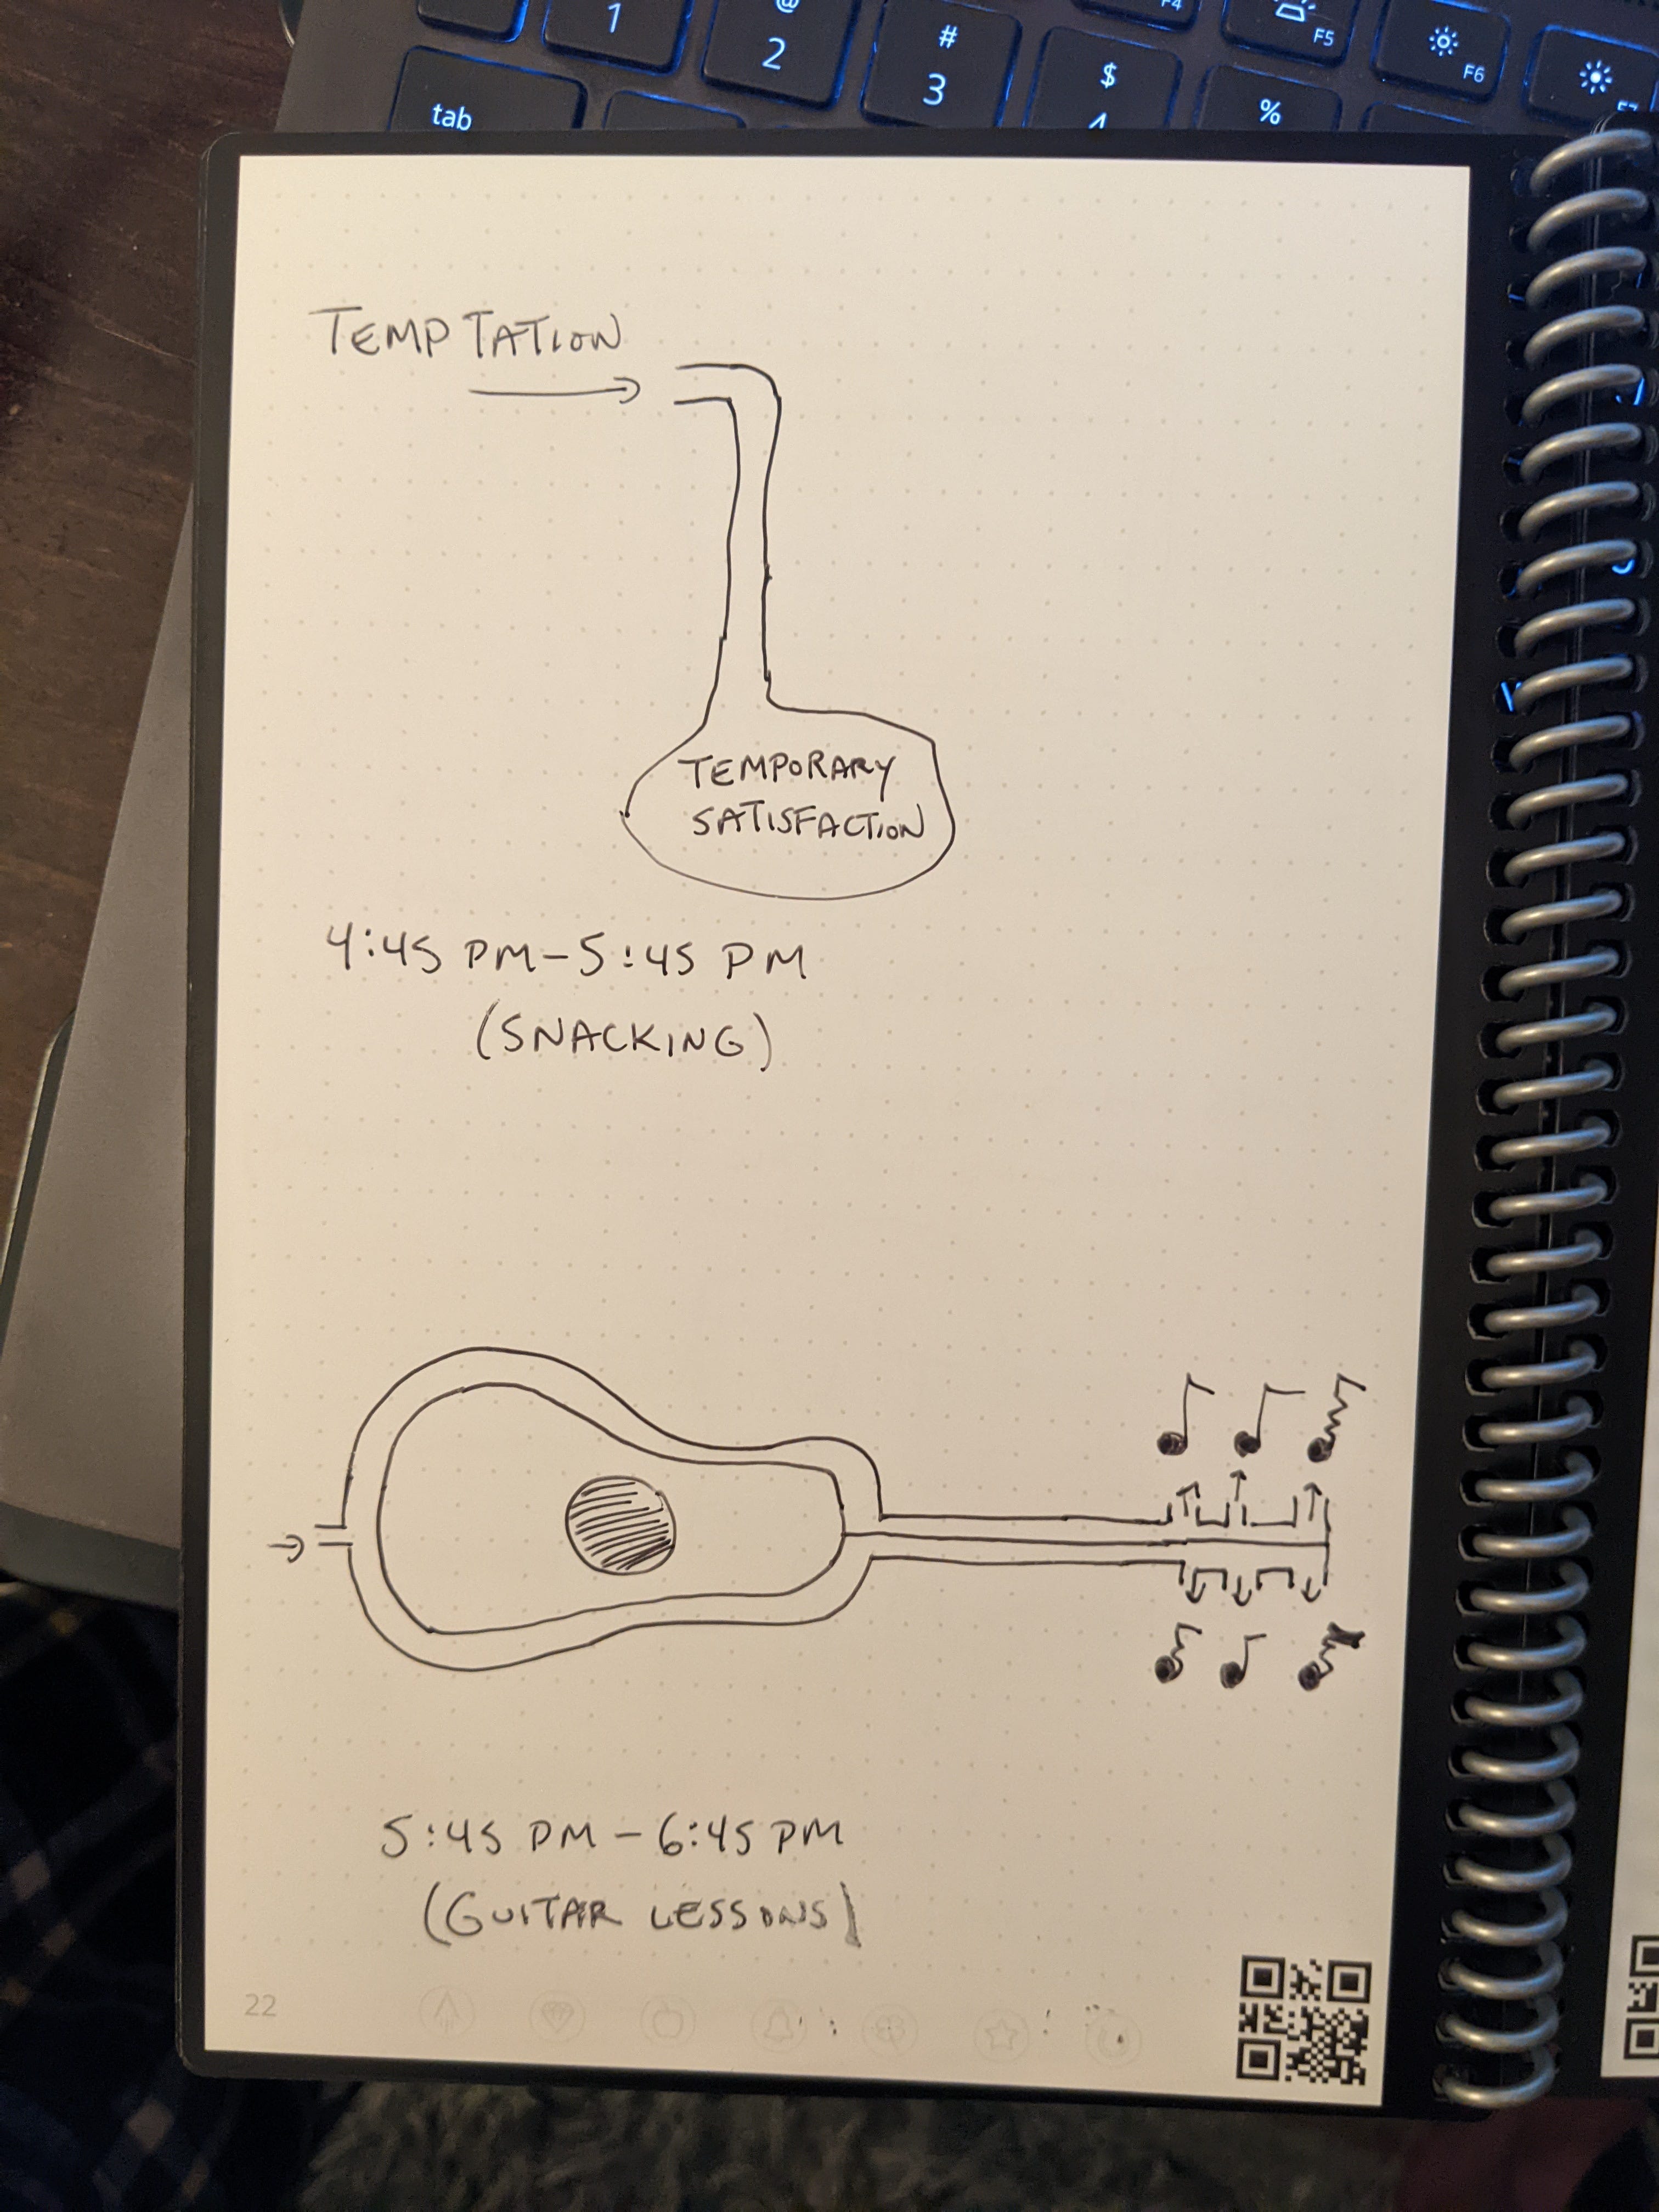 1
@
2
#
3
$
4
%
F4
F5
F6
F7
tab
TEMPTATION
TEMPORARY
SATISFACTION
4:45 PM-5:45 PM
(SNACKING)
5:45 PM - 6:45 PM
(GUITAR LESSONS)
22